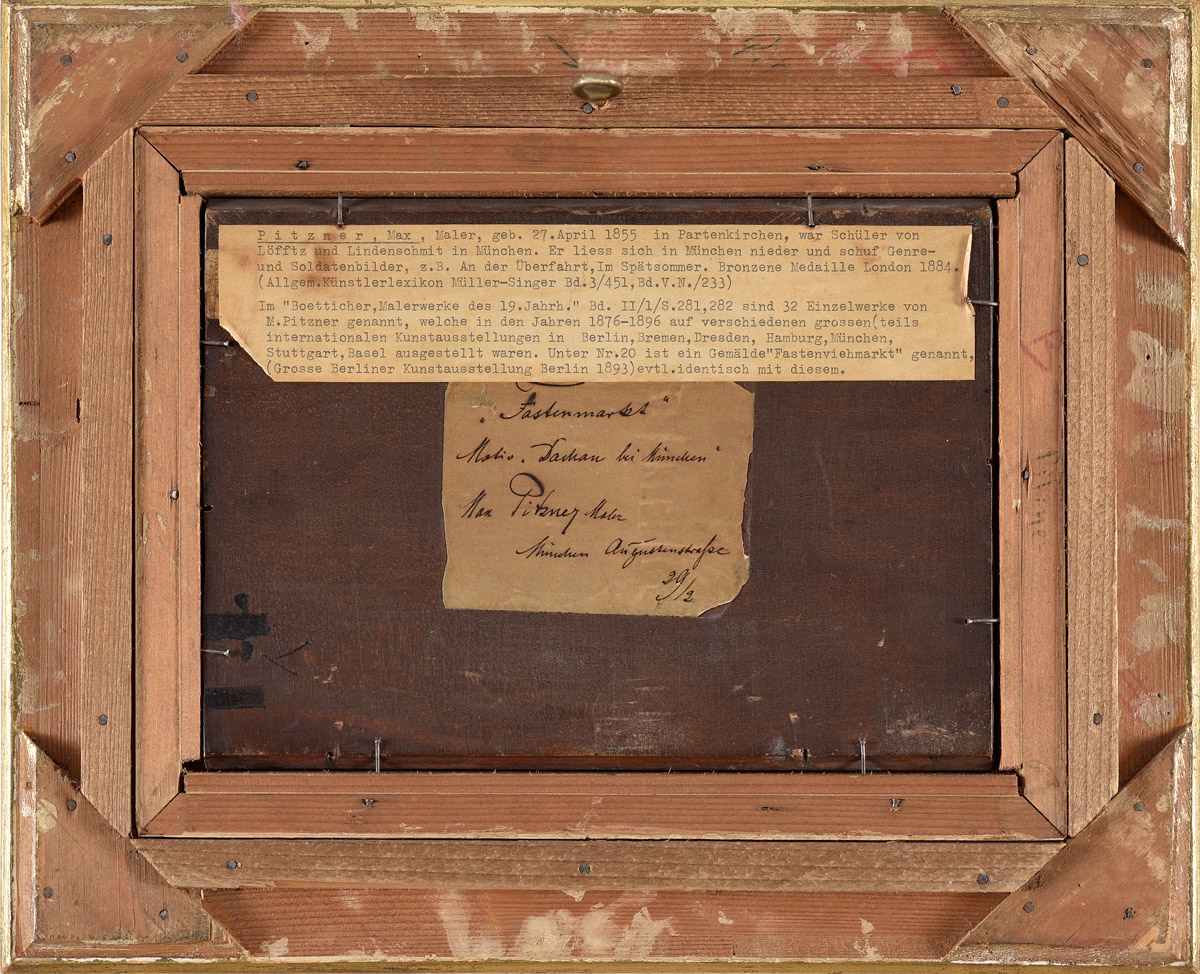 Pitzner, Max, Maler, geb. 27.April 1855 in Partenkirchen, war Schüler von
Löfftz und Lindenschmit in München. Er liess sich in München nieder und schuf Genre-
und Soldatenbilder, z.B. An der Überfahrt,Im Spätsommer. Bronzene Medaille London 1884.
(Allgem.Künstlerlexikon Müller-Singer Bd.3/451,Bd.V.N./233)
Im "Boetticher,Malerwerke des 19.Jahrh." Bd. II/1/S.281,282 sind 32 Einzelwerke von
M.Pitzner genannt, welche in den Jahren 1876-1896 auf verschiedenen grossen(teils
internationalen Kunstausstellungen in Berlin,Bremen,Dresden, Hamburg,München,
Stuttgart,Basel ausgestellt waren. Unter Nr.20 ist ein Gemälde"Fastenviehmarkt" genannt,
(Grosse Berliner Kunstausstellung Berlin 1893)evtl.identisch mit diesem.
„Fastenmarkt"
Motiv. Dachau bei München"
Max Pitzner Maler
München Augustenstraße
29/2